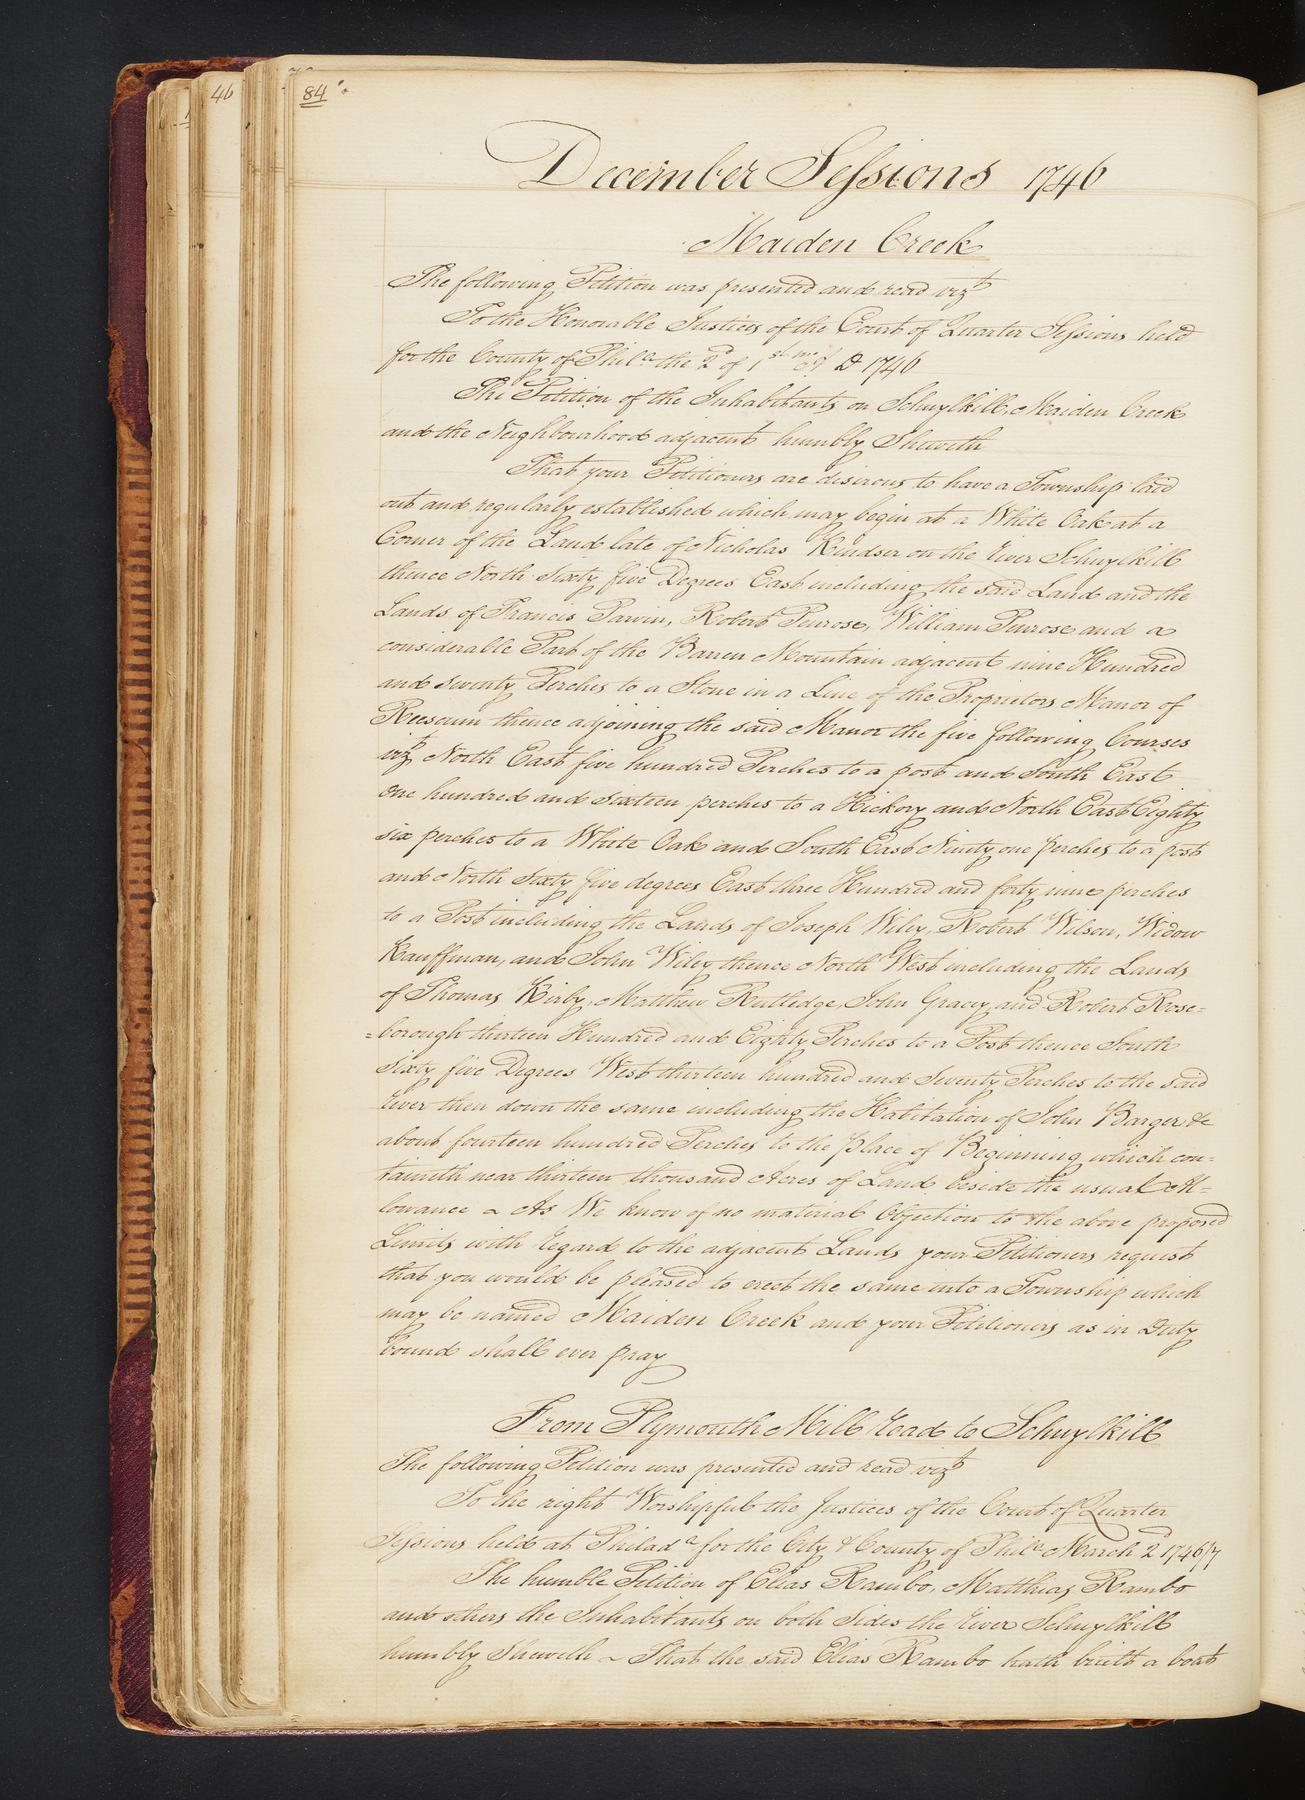 46
84
December Sessions 1746
Maiden Creek
The following Petition was presented and read vizt
To the Honorable Justices of the Court of Quarter Sessions held
for the County of Phila the 2d of 1st mo D 1746
The Petition of the Inhabitants on Schuylkill, Maiden Creek
and the Neighbourhood adjacent humbly Sheweth
That your Petitioners are disirous to have a Township laid
out and regularly established which may begin at a White Oak at a
Corner of the Land late of Nicholas Kindser on the River Schuylkill
thence North Sixty five Degrees East including the said Land and the
Lands of Francis Parvin, Robert Penrose, William Penrose and a
considerable Part of the Barren Mountain adjacent nine Hundred
and seventy Perches to a Stone in a Line of the Proprietors Manor of
Reescum thence adjoining the said Manor the five following Courses
vizt North East five hundred Perches to a post and South East
one hundred and sixteen perches to a Hickory and North East Eighty
six perches to a White Oak and South East Ninety one perches to a post
and North Sixty five degrees East three Hundred and forty nine perches
to a Post including the Lands of Joseph Wiley, Robert Wilson, Widow
Kauffman, and John Wiley thence North West including the Lands
of Thomas Kirby, Matthew Rutledge, John Gracey and Robert Rose=
=borough thirteen Hundred and Eighty Perches to a Post thence South
Sixty five Degrees West thirteen hundred and Seventy Perches to the said
River then down the same including the Habitation of John Barger &c
about fourteen hundred Perches to the place of Beginning which con=
taineth near thirteen thousand Acres of Land beside the usual Al=
lowance ~ As We know of no material Objection to the above proposed
Limits with regard to the adjacent Lands your Petitioners request
that you would be pleased to erect the same into a Township which
may be named Maiden Creek and your Petitioners as in Duty
bound shall ever pray
From Plymouth Mill Road to Schuylkill
The following Petition was presented and read vizt
To the right Worshipful the Justices of the Court of Quarter
Sessions held at Philada for the City & County of Phila March 2d 1746/7
The humble Petition of Elias Rambo, Matthias Rambo
and others the Inhabitants on both Sides the River Schuylkill
humbly Sheweth ~ That the said Elias Rambo hath built a boat